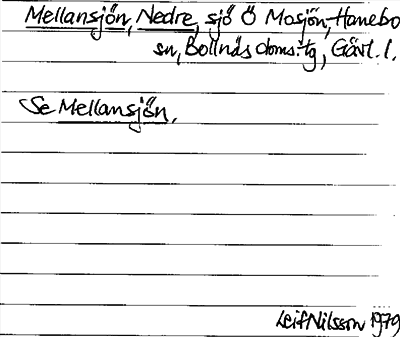 Mellansjön, Nedre, sjö Ö Mosjön, Hanebo
sn, Bollnäs doms:tg, Gävl. l.
Se Mellansjön.
Leif Nilsson 1979